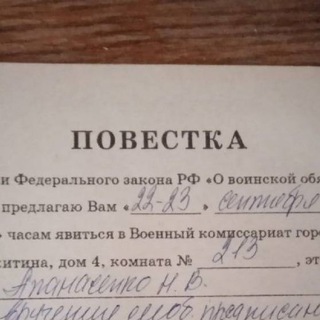 ПОВЕСТКА
и Федерального закона РФ «О воинской обя
предлагаю Вам «22-23» сентября
» часам явиться в Военный комиссариат гор
китина, дом 4, комната № 213, эт
Апанасенко Н. В.
вручение моб. предписан